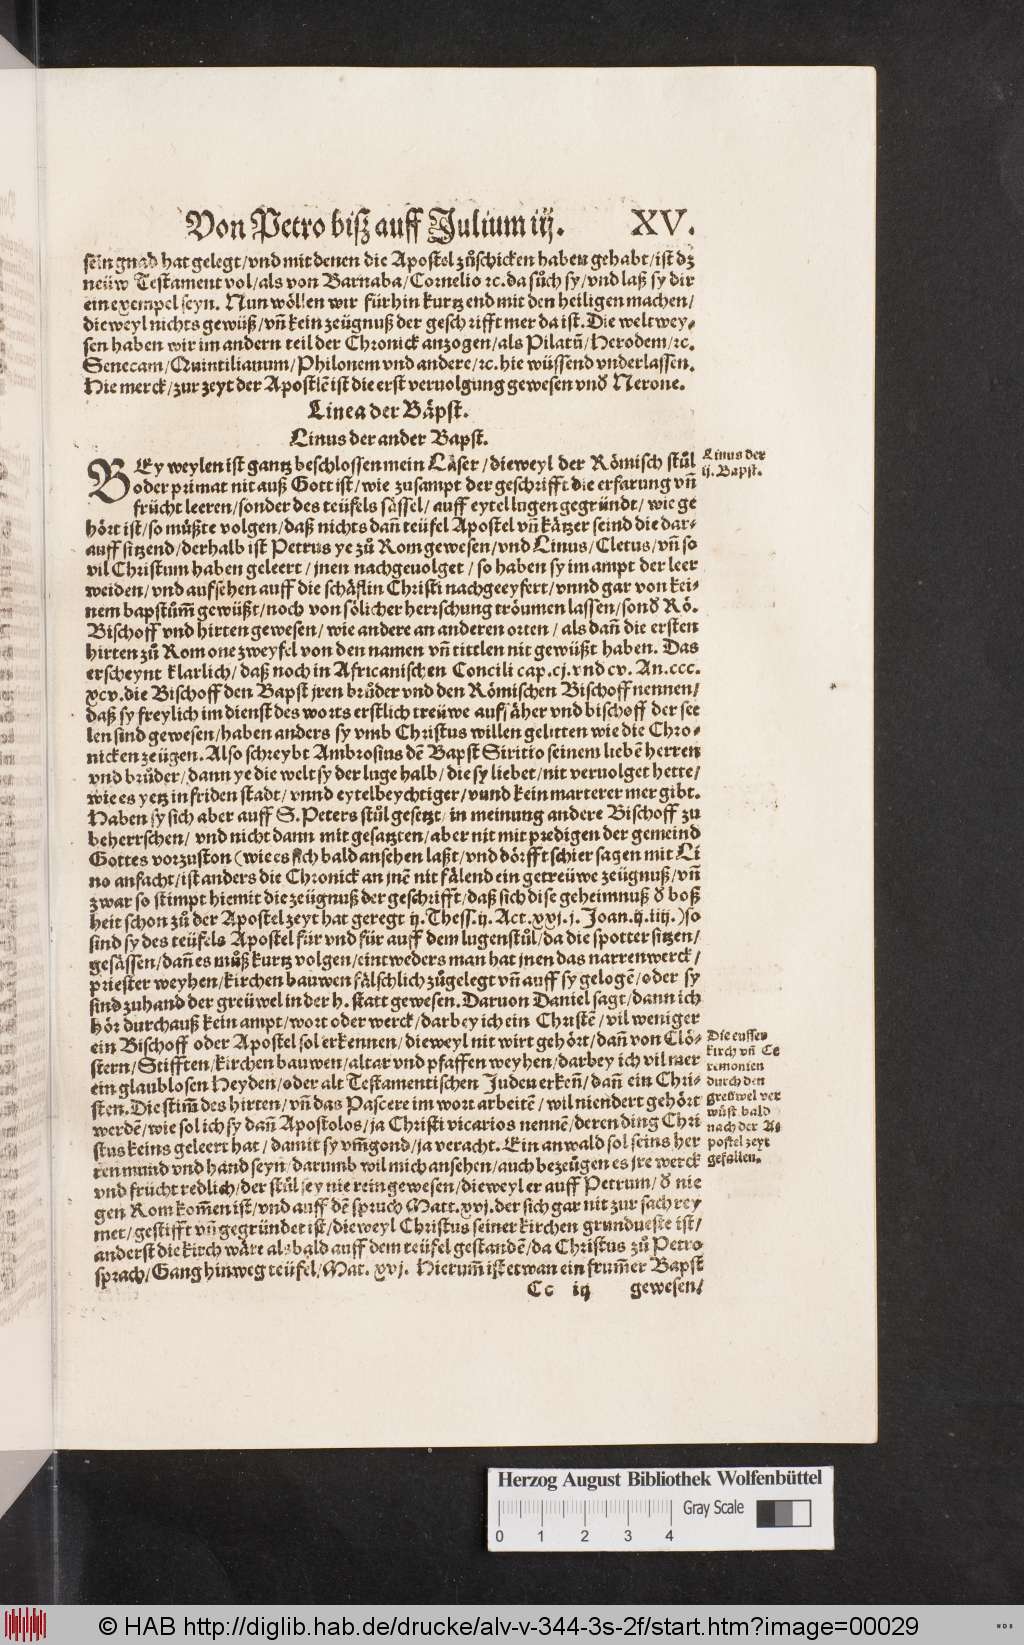 Von Petro biß auff Julium iij. XV.
sein gnad hat gelegt/vnd mit denen die Apostel zůschicken haben gehabt/ist dz
neüw Testament vol/als von Barnaba/Cornelio ꝛc. da sůch sy/vnd laß sy dir
ein exempel seyn. Nun wöllen wir fürhin kurtz end mit den heiligen machen/
dieweyl nichts gewüß/vñ kein zeügnuß der geschrifft mer da ist. Die weltwey-
sen haben wir im andern teil der Chronick anzogen/als Pilatũ/Herodem/ꝛc.
Senecam/Quintilianum/Philonem vnd andere/ꝛc. hie wüssend vnderlassen.
Hie merck/zur zeyt der Apostlẽ ist die erst veruolgung gewesen vnd̕ Nerone.
Linea der Bäpst.
Linus der ander Bapst.
Linus der
ij. Bapst.
BEy weylen ist gantz beschlossen mein Läser/dieweyl der Römisch stůl
oder primat nit auß Gott ist/wie zusampt der geschrifft die erfarung vñ
frücht leeren/sonder des teüfels sässel/auff eytel lugen gegründt/wie ge
hört ist/so müßte volgen/daß nichts dañ teüfel Apostel vñ kätzer seind die dar-
auff sitzend/derhalb ist Petrus ye zů Rom gewesen/vnd Linus/Cletus/vñ so
vil Christum haben geleert/jnen nachgeuolget/so haben sy im ampt der leer
weiden/vnd aufsehen auff die schäflin Christi nachgeeyfert/vnnd gar von kei-
nem bapstům̃ gewüßt/noch von sölicher herrschung tröumen lassen/sond̕ Rö.
Bischoff vnd hirten gewesen/wie andere an anderen orten/als dañ die ersten
hirten zů Rom one zweyfel von den namen vñ tittlen nit gewüßt haben. Das
erscheynt klarlich/daß noch in Africanischen Concili cap. cj. vnd cv. An. ccc.
xcv. die Bischoff den Bapst jren brůder vnd den Römischen Bischoff nennen/
daß sy freylich im dienst des worts erstlich treüwe aufsäher vnd bischoff der see
len sind gewesen/haben anders sy vmb Christus willen gelitten wie die Chro-
nicken zeügen. Also schreybt Ambrosius dẽ Bapst Siritio seinem liebẽ herren
vnd brůder/dann ye die welt sy der luge halb/die sy liebet/nit veruolget hette/
wie es yetz in friden stadt/vnnd eytel beychtiger/vnnd kein marterer mer gibt.
Haben sy sich aber auff S. Peters stůl gesetzt/in meinung andere Bischoff zu
beherrschen/vnd nicht dann mit gesatzten/aber nit mit predigen der gemeind
Gottes vorzuston (wie es sich bald ansehen laßt/vnd dörfft schier sagen mit Li
no anfacht/ist anders die Chronick an jnẽ nit fälend ein getreüwe zeügnuß/vñ
zwar so stimpt hiemit die zeügnuß der geschrifft/daß sich dise geheimnuß d̕ boß
heit schon zů der Apostel zeyt hat geregt ij. Thess. ij. Act. xxj. j. Joan. ij. iiij.) so
sind sy des teüfels Apostel für vnd für auff dem lugenstůl/da die spotter sitzen/
gesässen/dañ es můß kurtz volgen/eintweders man hat jnen das narrenwerck/
priester weyhen/kirchen bauwen fälschlich zůgelegt vñ auff sy gelogẽ/oder sy
sind zuhand der greüwel in der h. statt gewesen. Daruon Daniel sagt/dann ich
hör durchauß kein ampt/wort oder werck/darbey ich ein Christẽ/vil weniger
ein Bischoff oder Apostel sol erkennen/dieweyl nit wirt gehört/dañ von Clö-
stern/Stifften/kirchen bauwen/altar vnd pfaffen weyhen/darbey ich vil mer
ein glaublosen Heyden/oder alt Testamentischen Juden erkeñ/dañ ein Chri-
sten. Die stim̃ des hirten/vñ das Pascere im wort arbeitẽ/wil niendert gehört
werdẽ/wie sol ich sy dañ Apostolos/ja Christi vicarios nennẽ/deren ding Chri
stus keins geleert hat/damit sy vm̃gond/ja veracht. Ein anwald sol seins her
ren mund vnd hand seyn/darumb wil mich ansehen/auch bezeügen es jre werck
vnd frücht redlich/der stůl sey nie rein gewesen/dieweyl er auff Petrum/d̕ nie
gen Rom kom̃en ist/vnd auff dẽ spruch Matt. xvj. der sich gar nit zur sach rey
met/gestifft vñ gegründet ist/dieweyl Christus seiner kirchen grundueste ist/
anderst die kirch wäre als bald auff dem teüfel gestandẽ/da Christus zů Petro
sprach/Gang hinweg teüfel/Mat. xvj. Hierum̃ ist etwan ein frum̃er Bapst
Die eusser
kirch vñ Ce
remonien
durch den
greüwel ver
wüst. bald
nach der A-
postel zeyt
gefallen.
Cc iij gewesen/
Herzog August Bibliothek Wolfenbüttel
Gray Scale
0 1 2 3 4
© HAB http://diglib.hab.de/drucke/alv-v-344-3s-2f/start.htm?image=00029